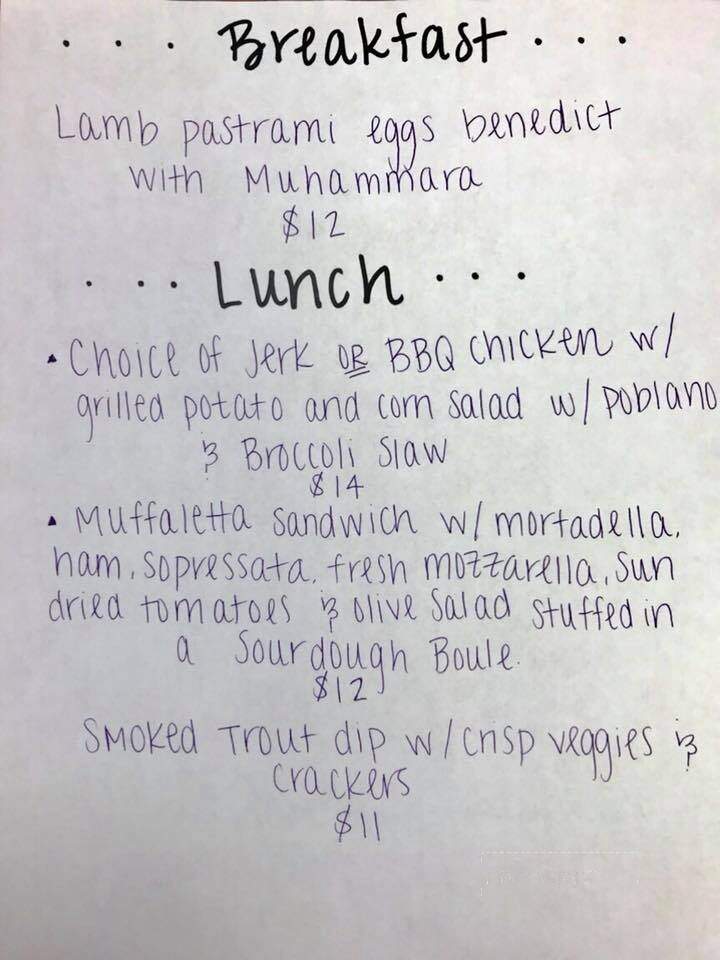 . . . Breakfast . . .
Lamb pastrami eggs benedict
with Muhammara
$12
. . . Lunch . . .
• Choice of Jerk OR BBQ chicken w/
grilled potato and corn salad w/ poblano
& Broccoli Slaw
$14
• Muffaletta sandwich w/ mortadella,
ham, sopressata, fresh mozzarella, sun
dried tomatoes & olive salad stuffed in
a Sourdough Boule.
$12
Smoked Trout dip w/ crisp veggies &
crackers
$11